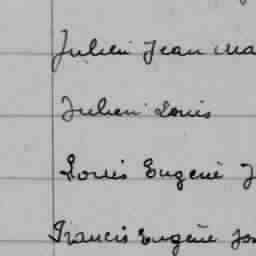 Julien Jean Ma
Julien Louis
Louis Eugène J
Francis Eugène Jos